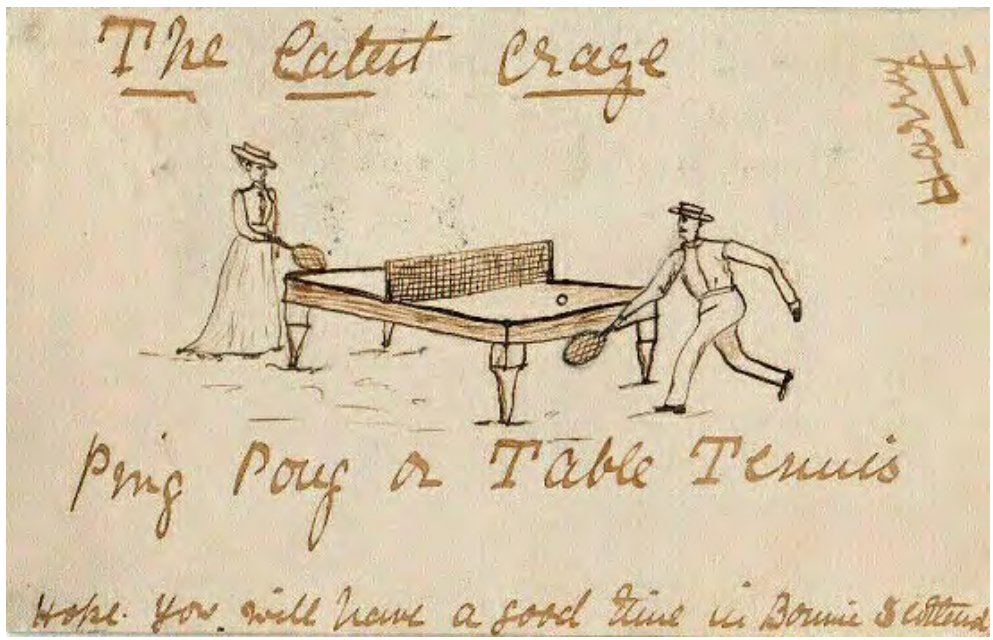 The Latest Craze
Harry
Ping Pong or Table Tennis
Hope you will have a good time in Bonnie Scotland